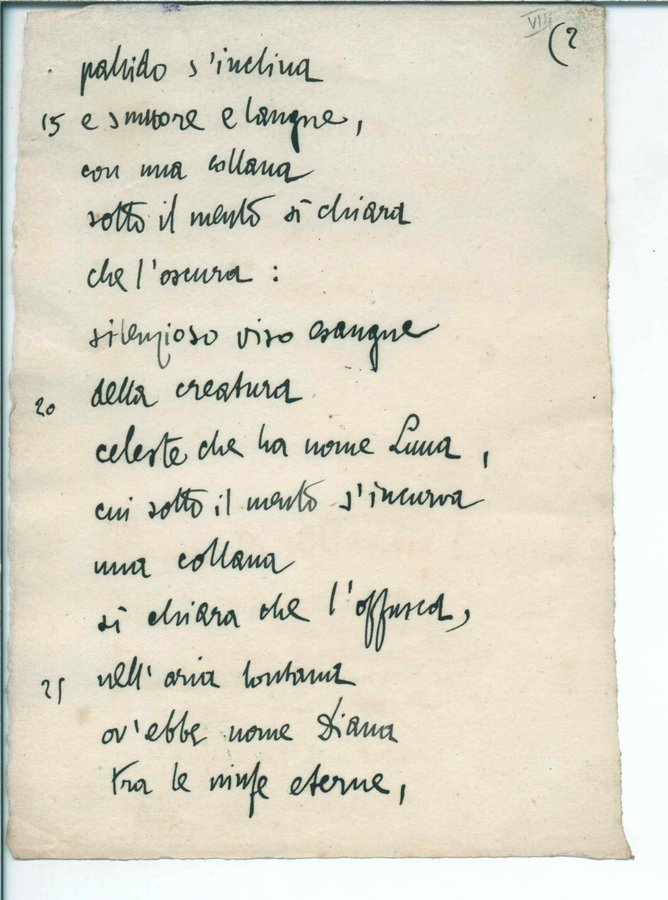 VII (2
pallido s'inclina
15 e smuore e langue,
con una collana
sotto il mento sì chiara
che l'oscura :
silenzioso viso esangue
20 della creatura
celeste che ha nome Luna,
cui sotto il mento s'incurva
una collana
sì chiara che l'offusca,
25 nell'aria lontana
ov'ebbe nome Diana
tra le ninfe eterne,